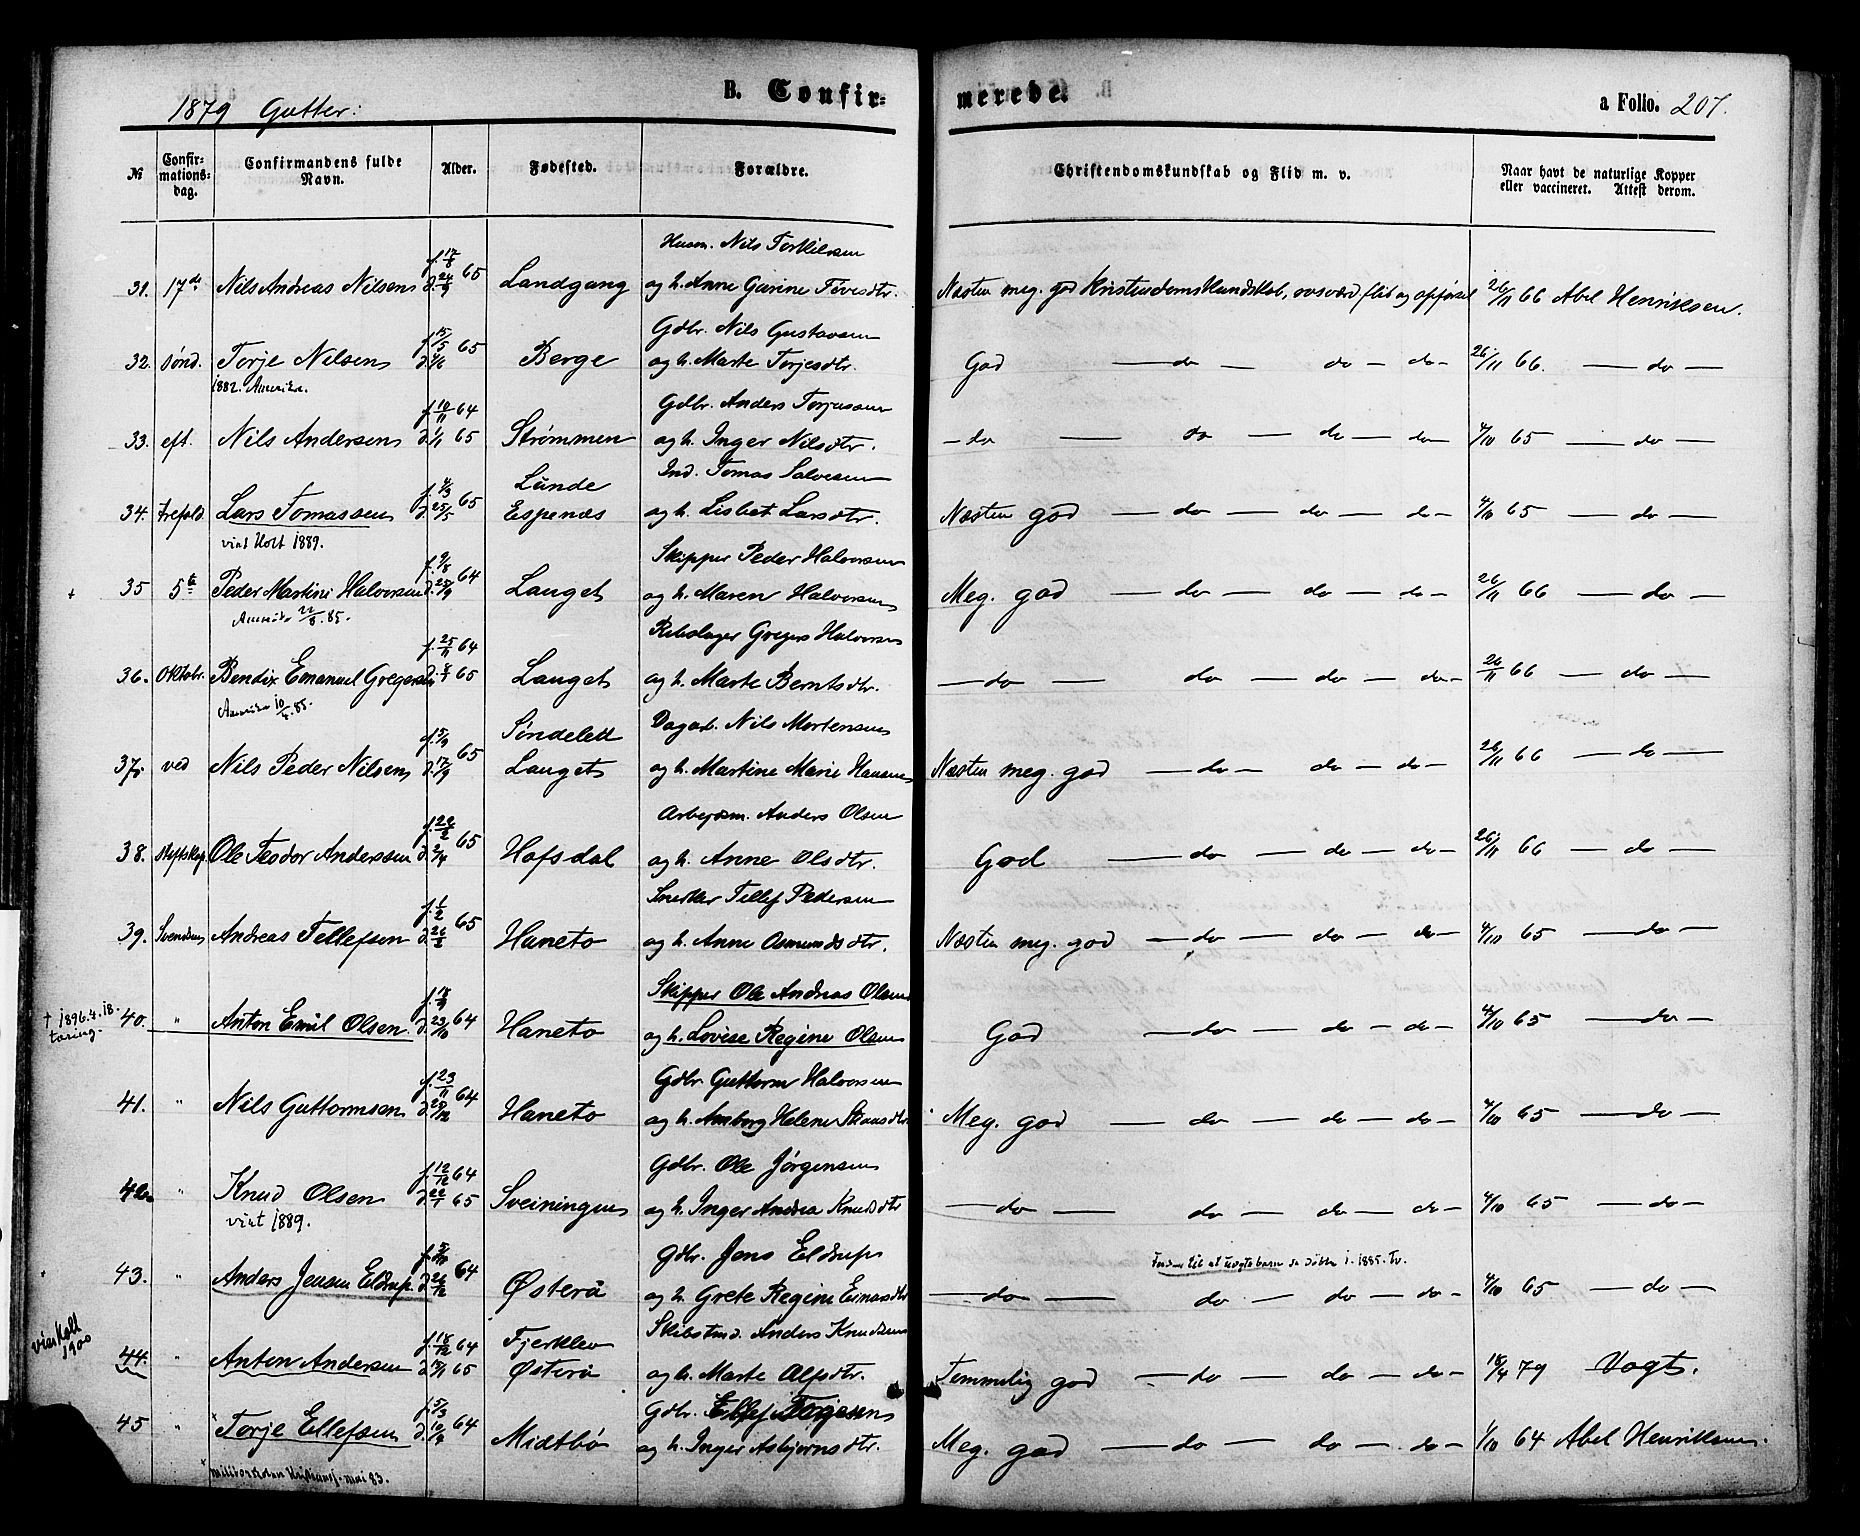 1879 Gutter:
B. Confir-
merede.
a Folio. 207.
№
Confir-
mations-
dag.
Confirmandens fulde
Navn.
Alder.
Fødested.
Forældre.
Christendomskundskab og Flid m. v.
Naar havt de naturlige Kopper
eller vaccineret. Attest derom.
Husm. Nils Torkilsen
31. 17de Nils Andreas Nilsen f. 17/8 d. 24/9 65 Landgang og h. Anne Gurine Tovesdtr. Næsten meg. god Kristendomskundskab, ovsværd flid og opførsel 26/11 66 Abel Henriksen.
Gdbr. Nils Gustavsen
32. Sønd. Torje Nilsen f. 15/5 d. 4/6 65 Berge og h. Marte Torjesdtr. God — do — do — do — 26/11 66. — do —
1882. Amerika.
Gdbr. Anders Torjussen
33. eft. Nils Andersen f. 10/11 64 d. 1/1 65 Strømmen og h. Inger Nilsdtr. — do — do — do — do — 4/10 65 — do —
Lunde Ind. Tomas Salvesen
34. trefold. Lars Tomassen f. 4/3 d. 25/5 65 Espenæs og h. Lisbet Larsdtr. Næsten god — do — do — do — 4/10 65 — do —
viat Holt 1889.
Skipper Peder Halvorsen
35 5te Peder Martin Halvorsen f. 9/8 d. 25/9 64 Lauget og h. Maren Halvorsen Meg. god — do — do — do — 26/11 66 — do —
Amerika 22/8. 85.
Rebslager Gregers Halvorsen
36. Oktobr. Bendix Emanuel Gregersen f. 25/11 64 65 Lauget og h. Marte Berntsdtr. — do — do — do — do — 26/11 66 — do —
Amerika 10/4. 85.
Søndelett Dagarb. Nils Mortensen
37. ved Nils Peder Nilsen f. 5/9 d. 17/9 65 Lauget og h. Martine Marie Hansen Næsten meg. god — do — do — do — 26/11 66 — do —
Arbejdsm. Anders Olsen
38. Stiftskap. Ole Teodor Anderssen f. 22/2 d. 2/4 65 Hafsdal og h. Anne Olsdtr. God — do — do — do — 26/11 66 — do —
Snedker Tellef Pedersen
39. Svendsen Andreas Tellefsen f. 1/2 65 Haneto og h. Anne Osmundsdtr. Næsten meg. god — do — do — do — 4/10 65 — do —
Skipper Ole Andreas Olsen
† 1896.4.18. 40. " Anton Emil Olsen. f. 18/9 d. 23/10 64 Haneto og h. Lovise Regine Olsen God — do — do — do — 4/10 65 — do —
tæring.
Gdbr Guttorm Halvorsen
41. " Nils Guttormsen f. 23/11 64 Haneto og h. Amborg Helene Meg. god — do — do — do — 4/10 65 — do —
Gdbr. Ole Jørgensen
42. " Knud Olsen f. 12/12 64 d. 22/1 65 Sveiningen og h. Inger Andrea Knudsdtr — do — do — do — do — 4/10 65 — do —
viat 1889.
Gdbr. Jens Eldrup
43. " Anders Jensen Eldrup. d. 26/12 64 Østerå og h. Grete Regine Einarsdtr — do — do — do — do — 4/10 65 — do —
viet Holt
1900
Fjerklev Skibstmd. Anders Knudsen
44. " Anton Andersen f. 18/12 64 65 Østerå og h. Marte Alfsdtr. Temmelig god — do — do — do — 18/4 79 Vogt.
Gdbr. Ellef Torjesen
45 " Torje Ellefsen f. 5/3 d. 10/4 64 Midtbø og h. Inger Asbjørnsdtr. Meg. god — do — do — do — 1/10 64 Abel Henriksen.
mai 83.